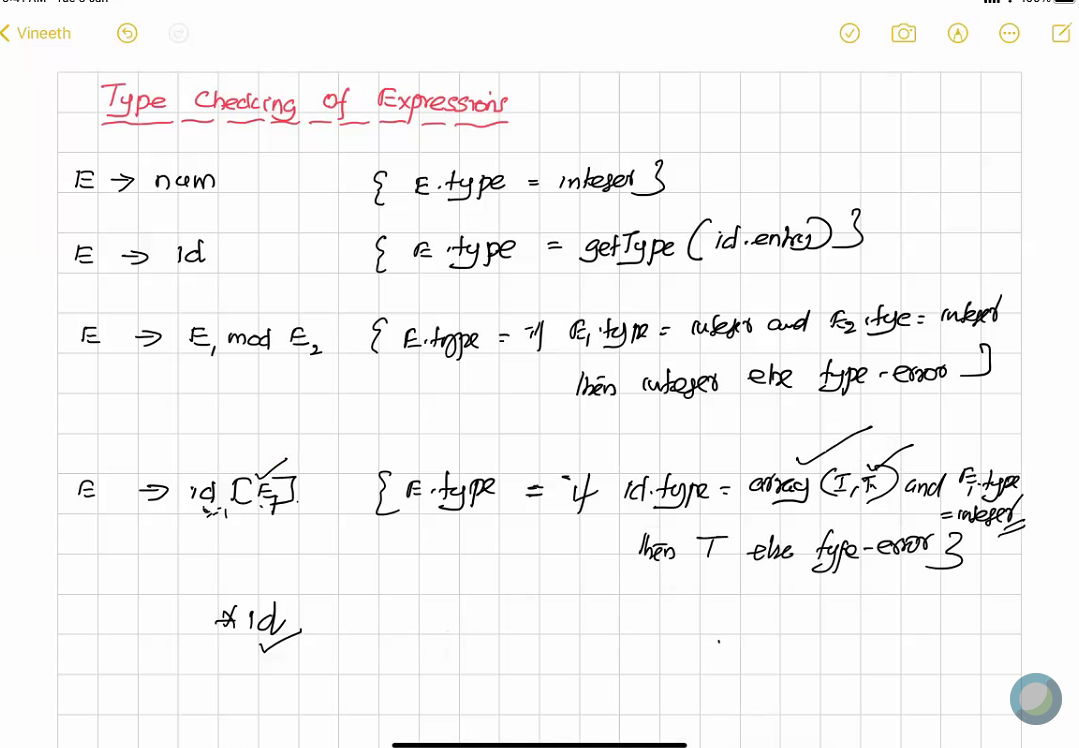 Vineeth
Type Checking of Expressions
E → num { E.type = integer }
E → id { E.type = getType (id.entry) }
E → E1 mod E2 { E.type = if E1.type = integer and E2.tye = integer
then integer else type-error }
E → id [E1]. { E.type = if id.type = array (I, T) and E1.type
= integer
then T else type-error }
* id